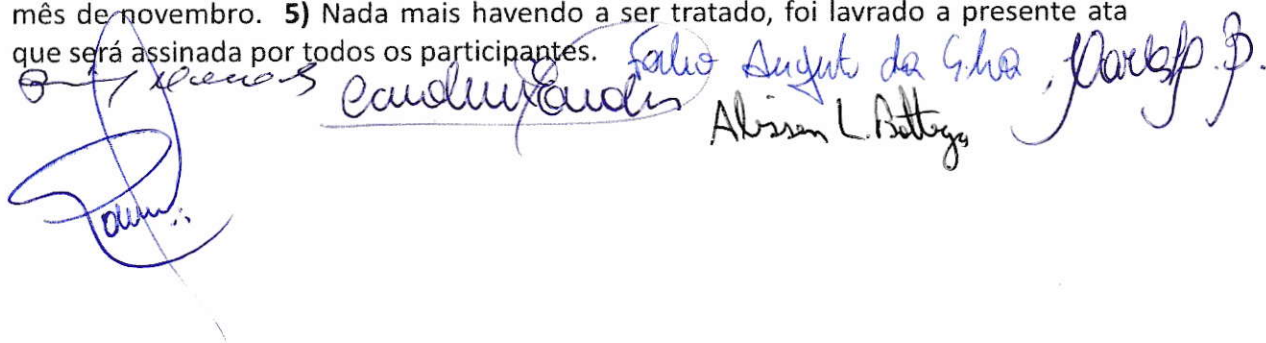 mês de novembro. 5) Nada mais havendo a ser tratado, foi lavrado a presente ata
que será assinada por todos os participantes.
Fabio Augusto da Silva,
Alisson L. Bottega